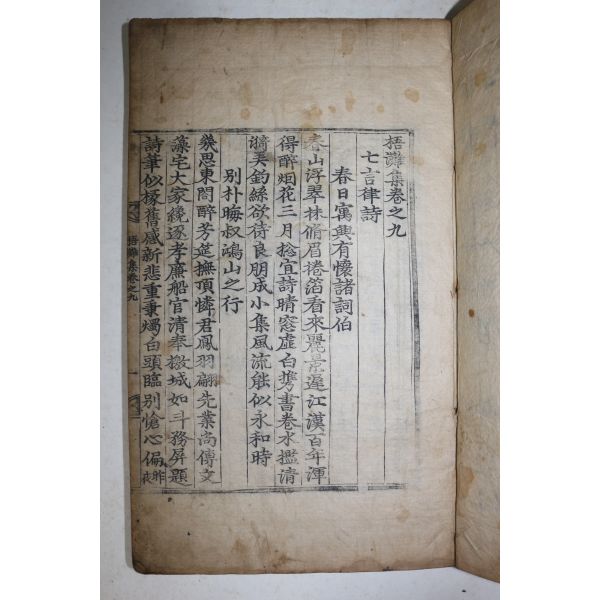 梧灘集卷之九
七言律詩
春日寓興有懷諸詞伯
春山浮翠抹脩眉捲箔看來麗景遲江漢百年渾
得醉烟花三月捴宜詩晴窓虛白擕書卷水檻清
漪釣絲欲待良朋成小集風流能似永和時
別朴晦叔鴻山之行
幾思東閤醉芳筵撫頂憐君鳳羽翩先業尙傳文
藻宅大家纔逐孝廉船官清奉檄城如斗務屏題
詩筆似椽舊感新悲重秉燭白頭臨別愴心偏昨夜
梧灘集卷之九
一